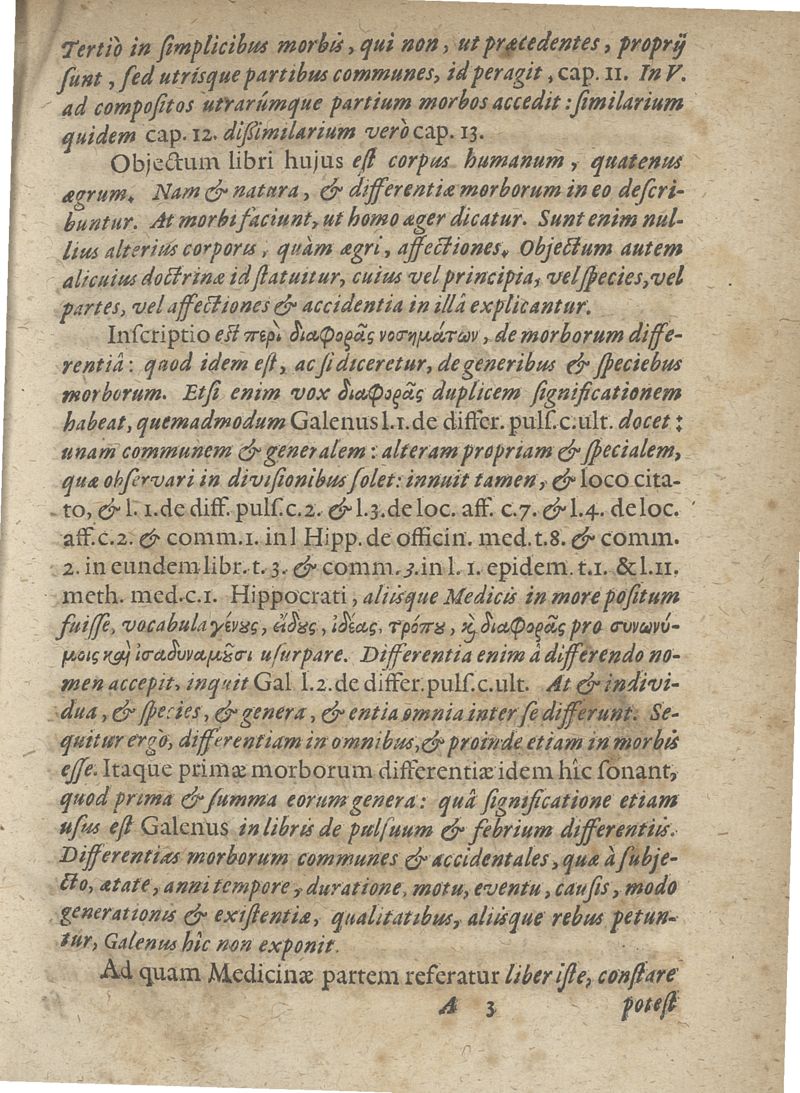 Tertiò in ſimplicibus morbis, qui non, ut præcedentes, proprij
ſunt, ſed utriſque partibus communes, id peragit, cap. 11. In V.
ad compoſitos utrarúmque partium morbos accedit: ſimilarium
quidem cap. 12. diſſimilarium verò cap. 13.
Objectum libri hujus eſt corpus humanum, quatenus
ægrum. Nam & natura, & differentiæ morborum in eo deſcri-
buntur. At morbi faciunt, ut homo æger dicatur. Sunt enim nul-
lius alterius corporis, quàm ægri, affectiones. Objectum autem
alicuius doctrinæ id ſtatuitur, cuius vel principia, vel ſpecies, vel
partes, vel affectiones & accidentia in illâ explicantur.
Inſcriptio eſt περὶ διαφορᾶς νοσημάτων, de morborum diffe-
rentiâ: quod idem eſt, ac ſi diceretur, de generibus & ſpeciebus
morborum. Etſi enim vox διαφορᾶς duplicem ſignificationem
habeat, quemadmodum Galenus l.1. de differ. pulſ. c. ult. docet:
unam communem & generalem: alteram propriam & ſpecialem,
quæ obſervari in diviſionibus ſolet: innuit tamen, & loco cita-
to, & l. 1. de diff. pulſ. c. 2. & l. 3. de loc. aff. c. 7. & l. 4. de loc.
aff. c. 2. & comm. 1. in l Hipp. de officin. med. t. 8. & comm.
2. in eundem libr. t. 3. & comm. 3. in l. 1. epidem. t. 1. & l. 11.
meth. med. c. 1. Hippocrati, aliiſque Medicis in more poſitum
fuiſſe, vocabula γένους, εἴδους, ἰδέας, τρόπου, καὶ διαφορᾶς pro συνωνύ-
μοις καὶ ἰσαδυναμοῦσι uſurpare. Differentia enim à differendo no-
men accepit, inquit Gal l. 2. de differ. pulſ. c. ult. At & indivi-
dua, & ſpecies, & genera, & entia omnia inter ſe differunt. Se-
quitur ergò, differentiam in omnibus, & proinde etiam in morbis
eſſe. Itaque primæ morborum differentiæ idem hîc ſonant,
quod prima & ſumma eorum genera: quâ ſignificatione etiam
uſus eſt Galenus in libris de pulſuum & febrium differentiis.
Differentias morborum communes & accidentales, quæ à ſubje-
cto, ætate, anni tempore, duratione, motu, eventu, cauſis, modo
generationis & exiſtentiæ, qualitatibus, aliiſque rebus petun-
tur, Galenus hîc non exponit.
Ad quam Medicinæ partem referatur liber iſte, conſtare
A 3 poteſt